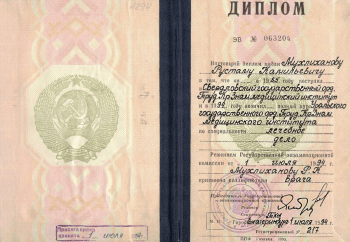 ДИПЛОМ
ЭВ № 063204
Настоящий диплом выдан Мухлиханову
Рустаму Камильевичу
в том, что он в 19 88 году поступил
Свердловский государственный орд.
Труд. Кр. Знам. медицинский институт
и в 19 94 году окончил полный курс Уральского
государственного орд. Труд. Кр. Знам.
Медицинского института
по специальности лечебное
дело
Решением Государственной экзаменационной
комиссии от 1 июля 19 94 г.
Мухлиханову Р.К.
присвоена квалификация врача
М. П.
Екатеринбург 1 июля 1994 г.
Регистрационный № 217
1 июля 94 г.